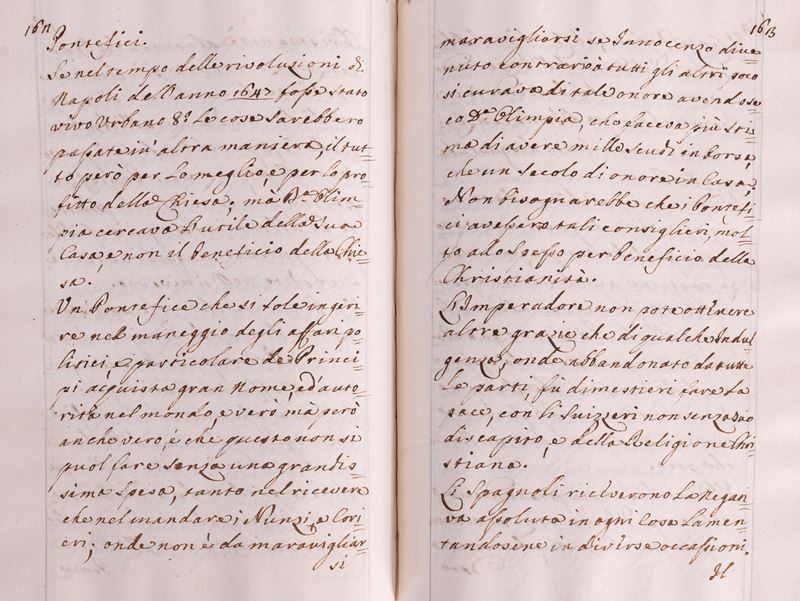 Pontefici.
Se nel tempo delle rivoluzioni di
Napoli dell'anno 1647 fosse stato
vivo Urbano 8.º le cose sarebbero
passate in altra maniera, il tut=
to però per lo meglio, e per lo pro=
fitto della Chiesa; mà D.ª Olim=
pia cercava l'utile della sua
Casa, e non il beneficio della Chie=
sa.
Un Pontefice che si tole ingeri=
re nel maneggio degli affari po=
litici, e particolare de Princi=
pi acquista gran nome, ed auto=
rità nel mondo, e verò mà però
anche vero, è che questo non si
puol fare senza una grandis=
sima spesa, tanto nel ricevere
che nel mandare i Nunzi, e Cori=
eri; onde non è da maravigliar=
si
1613
maravigliorsi se Innocenzo dive=
nuto contrario à tutti gli altri poco
si curava di tale onore avendo se=
co D.ª Olimpia, che faceva più sti=
ma di avere mille scudi in borsa,
che un secolo di onore in Casa,
Non bisognarebbe che i Pontefi=
ci avessero tali consiglieri, mol=
to allo spesso per beneficio della
Christianità.
L'Imperadore non pote ottenere
altre grazie che di qualche Indul=
genza, onde abbandonato da tutte
le parti, fù di mestieri fare la
pace, con li Suizzeri non senza suo
discapito, e della Religione Chri=
stiana.
Li Spagnoli riceverono la Negati=
va assoluta in ogni Cosa lamen=
tandosene in diverse occassioni.
Il